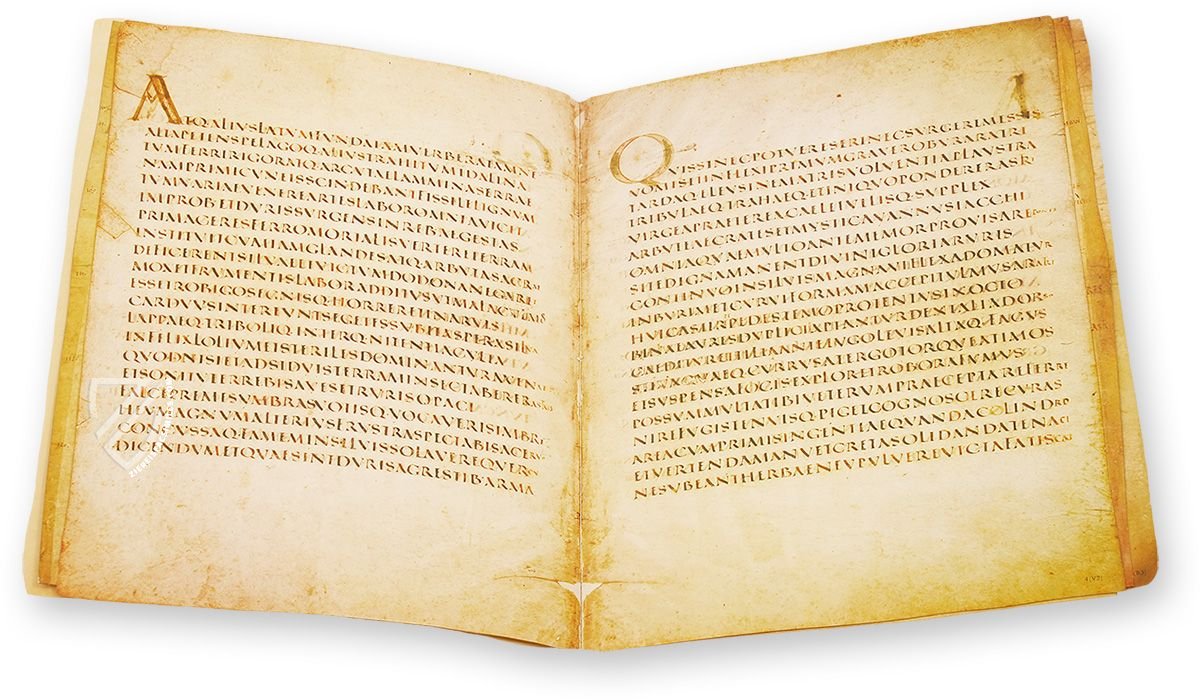 ATQ·ALIVSLATVMFVNDAIAMVERBERATAMNE
ALTAPETENSPELAGOQ·ALIVSTRAHITVMIDALINA
TVMFERRIRIGORATQ·ARGVTAELAMMINASERRAE
NAMPRIMICVNEISSCINDEBANTFISSILELIGNVM
TVMVARIAEVENEREARTESLABOROMNIAVICIT
IMPROB·ETDVRISVRGENSINREB·AEGESTAS
PRIMACERESFERROMORTALISVERTERETERRAM
INSTITVITCVMIAMGLANDESATQ·ARBVTASACRAE
DEFICERENTSILVAEETVICTVMDODONANEGARET
MOXETFRVMENTISLABORADDITVSVTMALACVLMOS
ESSETROBIGOSEGNISQ·HORRERETINARVIS
CARDVVSINTEREVNTSEGETESSVBITASPERASILVA
LAPPAEQ·TRIBOLIQ·INTERQ·NITENTIACVLTA
INFELIXLOLIVMETSTERILESDOMINANTVRAVENAE
QVODNISIETADSIDVISTERRAMINSECTABERERASTRIS
ETSONITVTERREBISAVESETRVRISOPACI
FALCEPREMESVMBRASVOTISQ·VOCAVERISIMBRE
HEVMAGNVMALTERIVSFRVSTRASPECTABISACERVM
CONCVSSAQ·FAMEMINSILVISSOLAVEREQVERCV
DICENDVMETQVAESINTDVRISAGRESTIB·ARMA
QVISSINECPOTVERESERINECSVRGEREMESSES
VOMISETINFLEXIPRIMVMGRAVEROBVRARATRI
TARDAQ·ELEVSINAEMATRISVOLVENTIAPLAVSTRA
TRIBVLAEQ·TRAHAEQ·ETINIQVOPONDERERASTRI
VIRGEAPRAETEREACAELEIVILISQ·SVPPLEX
ARBVTEAECRATESETMYSTICAVANNVSIACCHI
OMNIAQVAEMVLTOANTEMEMORPROVISAREP
SITEDIGNAMANENTDIVINIGLORIARVRIS
CONTINVOINSILVISMAGNAVIFLEXADOMATVR
INBVRIMETCVRVIFORMAMACCIPITVLMVSARATRI
HVICASTIRPEPEDESTEMOPROTENTVSINOCTO
BINAEAVRESDVPLICIAPTANTVRDENTALIADORSO
ETSVSPENSALOCISEXPLORETROBORAFVMVS
POSSVMMVLTATIBIVETERVMPRAECEPTAREFERRE
NIREFVGISTENVISQ·PIGETCOGNOSCERECVRAS
AREACVMPRIMISINGENTIAEQVANDACYLINDRO
ETVERTENDAMANVETCRETASOLIDANDATENACI
NESVBEANTHERBAENEVPVLVEREVICTAFATISCAT